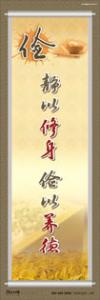 俭
静以修身 俭以养德